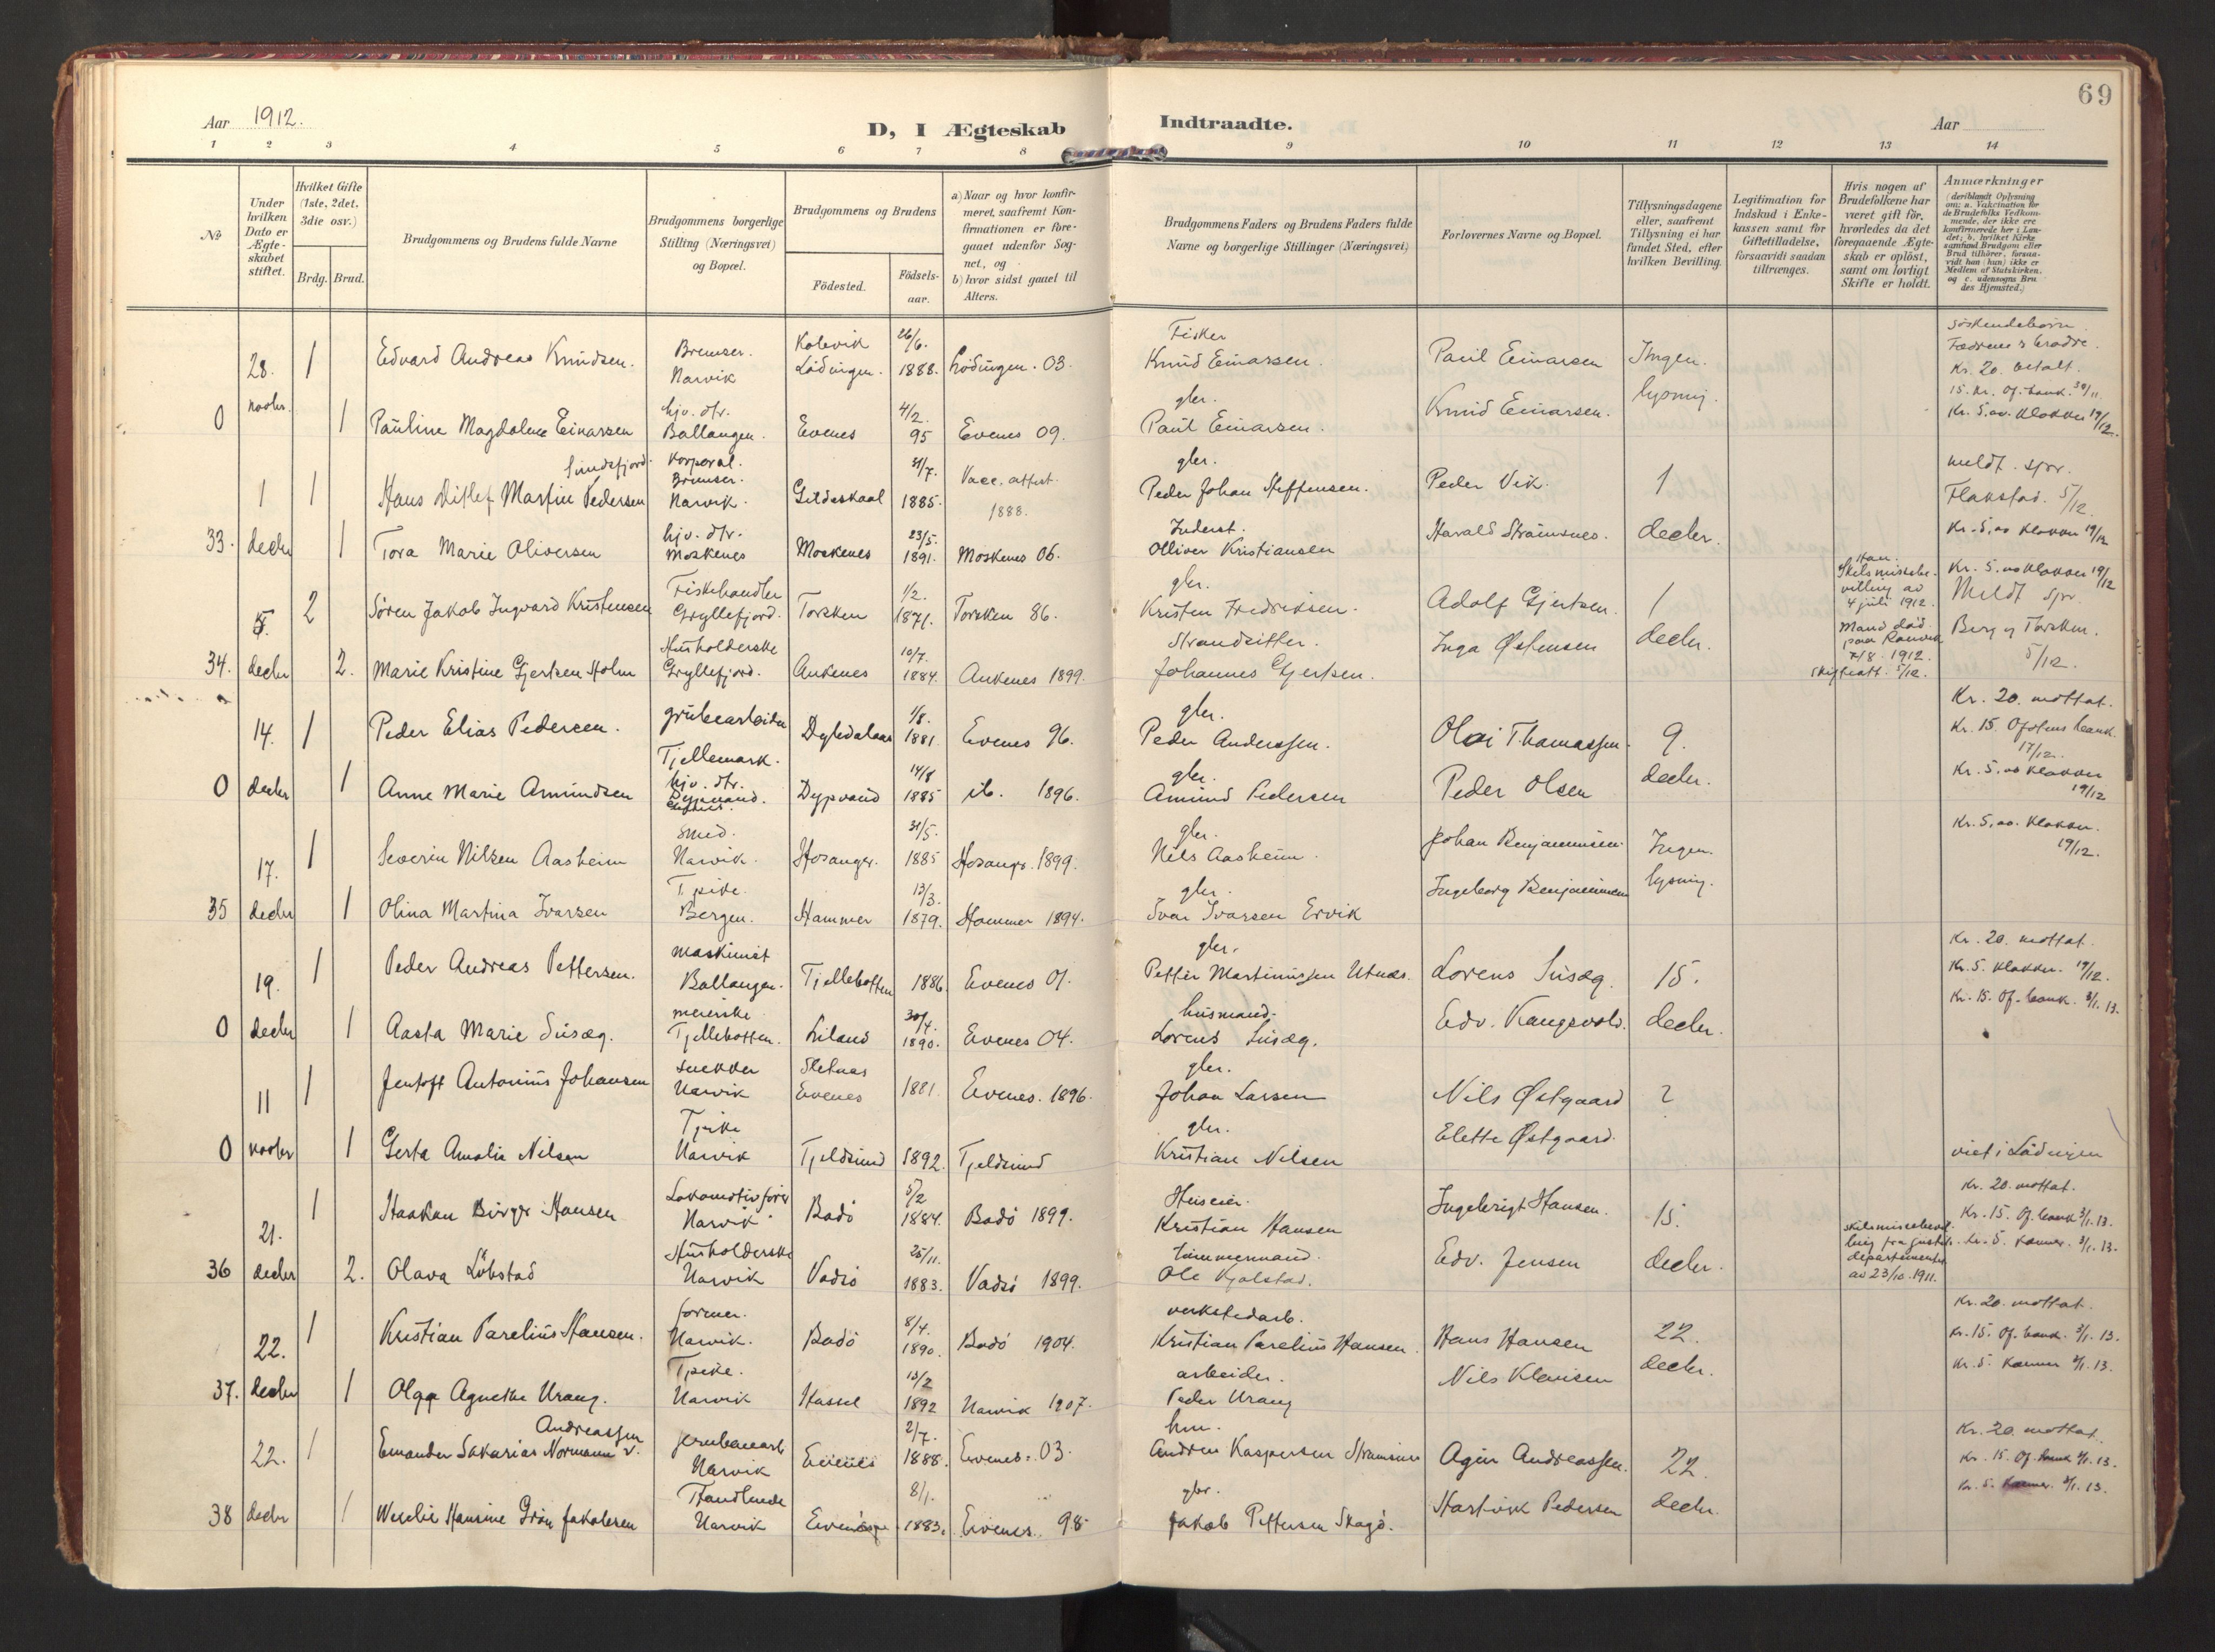 69
Aar 1912.
D, I Ægteskab Indtraadte.
Aar
1 2 3 4 5 6 7 8 9 10 11 12 13 14
No
Under hvilken Dato er Ægte-skabet stiftet.
Hvilket Gifte (1ste, 2det, 3die osv.)
Brdg. Brud.
Brudgommens og Brudens fulde Navne
Brudgommens borgerlige Stilling (Næringsvei) og Bopæl.
Brudgommens og Brudens
Födested.
Födsels-aar.
a) Naar og hvor konfir-meret, saafremt Kon-firmationen er fore-gaaet udenfor Sog-net, og
b) hvor sidst gaaet til Alters.
Brudgommens Faders og Brudens Faders fulde Navne og borgerlige Stillinger (Næringsvei)
Forlovernes Navne og Bopæl.
Tillysningsdagene eller, saafremt Tillysning ei har fundet Sted, efter hvilken Bevilling.
Legitimation for Indskud i Enke-kassen samt for Giftetilladelse, forsaavidt saadan tiltrænges.
Hvis nogen af Brudefolkene har været gift før, hvorledes da det foregaaende Ægte-skab er oplöst, samt om lovligt Skifte er holdt.
Anmærkninger
(deriblandt Oplysning om: a. Vakcination for de Brudefolks Vedkom-mende, der ikke ere konfirmerede her i Lan-det; b. hvilket Kirke-samfund Brudgom eller Brud tilhører, forsaa-vidt han (hun) ikke er Medlem af Statskirken, og c. udensogns Bru-des Hjemsted.)
28. 1 Edvard Andreas Knudsen. Bremser. Narvik Kobvik Lødingen. 26/6. 1888. Lødingen. 03. Fisker Knud Einarsen. Paul Einarsen Ingen lysning. Søskendebørn. Kr. 20. betalt.
0 novbr. 1 Pauline Magdalene Einarsen hjv. dtr. Ballangen. Evenes 4/2. 95 Evenes 09. gbr. Paul Einarsen. Knud Einarsen. 15. Kr. Of. bank. 30/11. Kr. 5. av. Klokker 19/12.
1 1 Hans Ditlef Martin Pedersen Korporal. Bremser. Narvik. Gildeskaal 31/7. 1885. Vacc. attest. 1888. gbr. Peder Johan Steffensen. Peder Vik. 1 meldt. spr. Flakstad. 5/12.
33. decbr 1 Tora Marie Oliversen hjv. dtr. Moskenes Moskenes 23/5. 1891. Moskenes 06. Inderst. Olliver Kristiansen Harald Strømsnes. decbr. Kr. 5. av Klokker 19/12
5. 2 Søren Jakob Ingvard Kristensen Fiskehandler Gryllefjord. Torsken 1/2. 1871. Torsken 86. gbr. Kristen Fredriksen. Adolf Gjertsen. 1 Han. Skilsmissebe-villing av 4 juli 1912. Kr. 5. av Klokker 19/12 Meldt spr.
34. decbr 2. Marie Kristine Gjertsen Holm Husholderske Gryllefjord. Ankenes 10/7. 1884. Ankenes 1899. Strandsitter. Johannes Gjertsen. Inga Østensen decbr. Mand død 7/8. 1912. skifteatt. 5/12. Berg og Torsken. 5/12.
14. 1 Peder Elias Pedersen. grubearbeider Tjellemark. 1/8. 1881 Evenes 96. gbr. Peder Anderssen. Olai Thomassen. 9. Kr. 20. mottat. Kr. 15. Ofotens bank. 17/12.
0 decbr 1 Anne Marie Amundsen hjv. dtr. Dypvand. Dypvand 14/8 1885 ib. 1896. gbr. Amund Pedersen Peder Olsen decbr. Kr. 5. av Klokker 19/12
17. 1 Severin Nilsen Aasheim smed. Narvik. Hosanger. 31/5. 1885 Hosangr. 1899. gbr. Nils Aasheim. Johan Benjaminsen. Ingen lysning. Kr. 5. av. Klokker. 19/12.
35 decbr 1 Olina Martina Ivarsen Tpike. Bergen. Hammer 13/3. 1879. Hammer 1894. gbr. Ivar Ivarsen Ervik Ingeborg Benjaminsen
19. 1 Peder Andreas Pettersen. maskinist Ballangen. Tjellebotten 1886. Evenes 01. gbr. Petter Martinussen Utnæs. Lorens Susæg. 15. Kr. 20. mottat. Kr. 5. Klokker. 19/12.
0 decbr 1 Aasta Marie Susæg. meierske Tjellebotten. Liland 30/4. 1890. Evenes 04. husmand. Lorens Susæg. Edv. Kangsvold. decbr. Kr. 15. Of. bank. 3/1. 13.
11 1 Jentoft Antonius Johansen snekker Narvik Sletnes Evenes 1881. Evenes. 1896. gbr. Johan Larsen Nils Østgaard 2
0 novbr 1 Gerta Amalie Nilsen Tpike Narvik Tjeldsund 1892. Tjeldsund gbr. Kristian Nilsen Elette Østgaard. viet i Lødingen
21. 1 Haakon Birger Hansen Lokomotivfører Narvik. Bodø 5/2 1884. Bodø 1899. Huseier. Kristian Hansen Ingebrigt Hansen. 15. Kr. 20. mottat. Kr. 15. Of. bank 3/1. 13.
36 decbr 2. Olava Løbstad Husholderske Narvik Vadsø 25/11. 1883. Vadsø 1899. Tømmermand. Ole Edv. Jensen decbr. departementet av 23/10. 1911. Kr. 5. Kanner. 3/1. 13.
22. 1 Kristian Parelius Hansen. former. Narvik. Bodø 8/4. 1890. Bodø 1904. verkstedarb. Kristian Parelius Hansen. Hans Hansen 22. Kr. 20. mottat. Kr. 15. Of. bank. 3/1. 13.
37. decbr 1 Olga Agnethe Urang. Tpike. Narvik Hassel 13/2 1892 Narvik 1907. arbeider. Peder Urang Nils Klausen decbr. Kr. 5. Kanner 3/1. 13.
22. 1 Emander Sakarias Normann Andreassen jernbanearb Narvik Evenes 2/7. 1888. Evenes. 03. hm. Andreas Kaspersen Agur Andreassen. 22. Kr. 20. mottat. Kr. 15. Of. bank 3/1. 13.
38 decbr 1 Hansine Grøn Jakobsen Handlende Narvik 8/1. 1883. Evenes. 98 gbr. Jakob Pettersen Skagø. Hartvik Pedersen decbr. Kr. 5. Kanner. 3/1. 13.